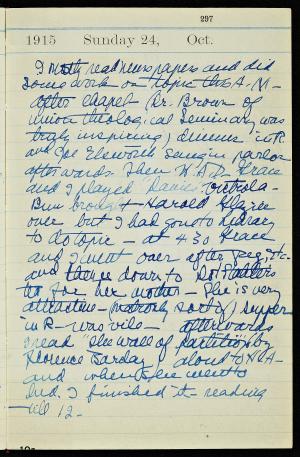 297
1915 Sunday 24, Oct.
I read newspapers and did
some work on topic this A.M-
after chapel Dr. Brown of
Union theological Seminary was
truly inspiring) dinner in R.
and Joe Elsworth sang in parlor
afterwards. Then W.A.D. Grace
and I played Victrola-
Bun brought Harold Glazier
over but I had gone to library
to do topic - at 4 30 Grace
and I went over after
and down to
her mother - She is very
attractive - sort) supper
in R - was vile - afterwards
I read "The wall of Partition" by
Florence Barclay aloud to A-
and when she went to
bed. I finished it - reading
till 12-